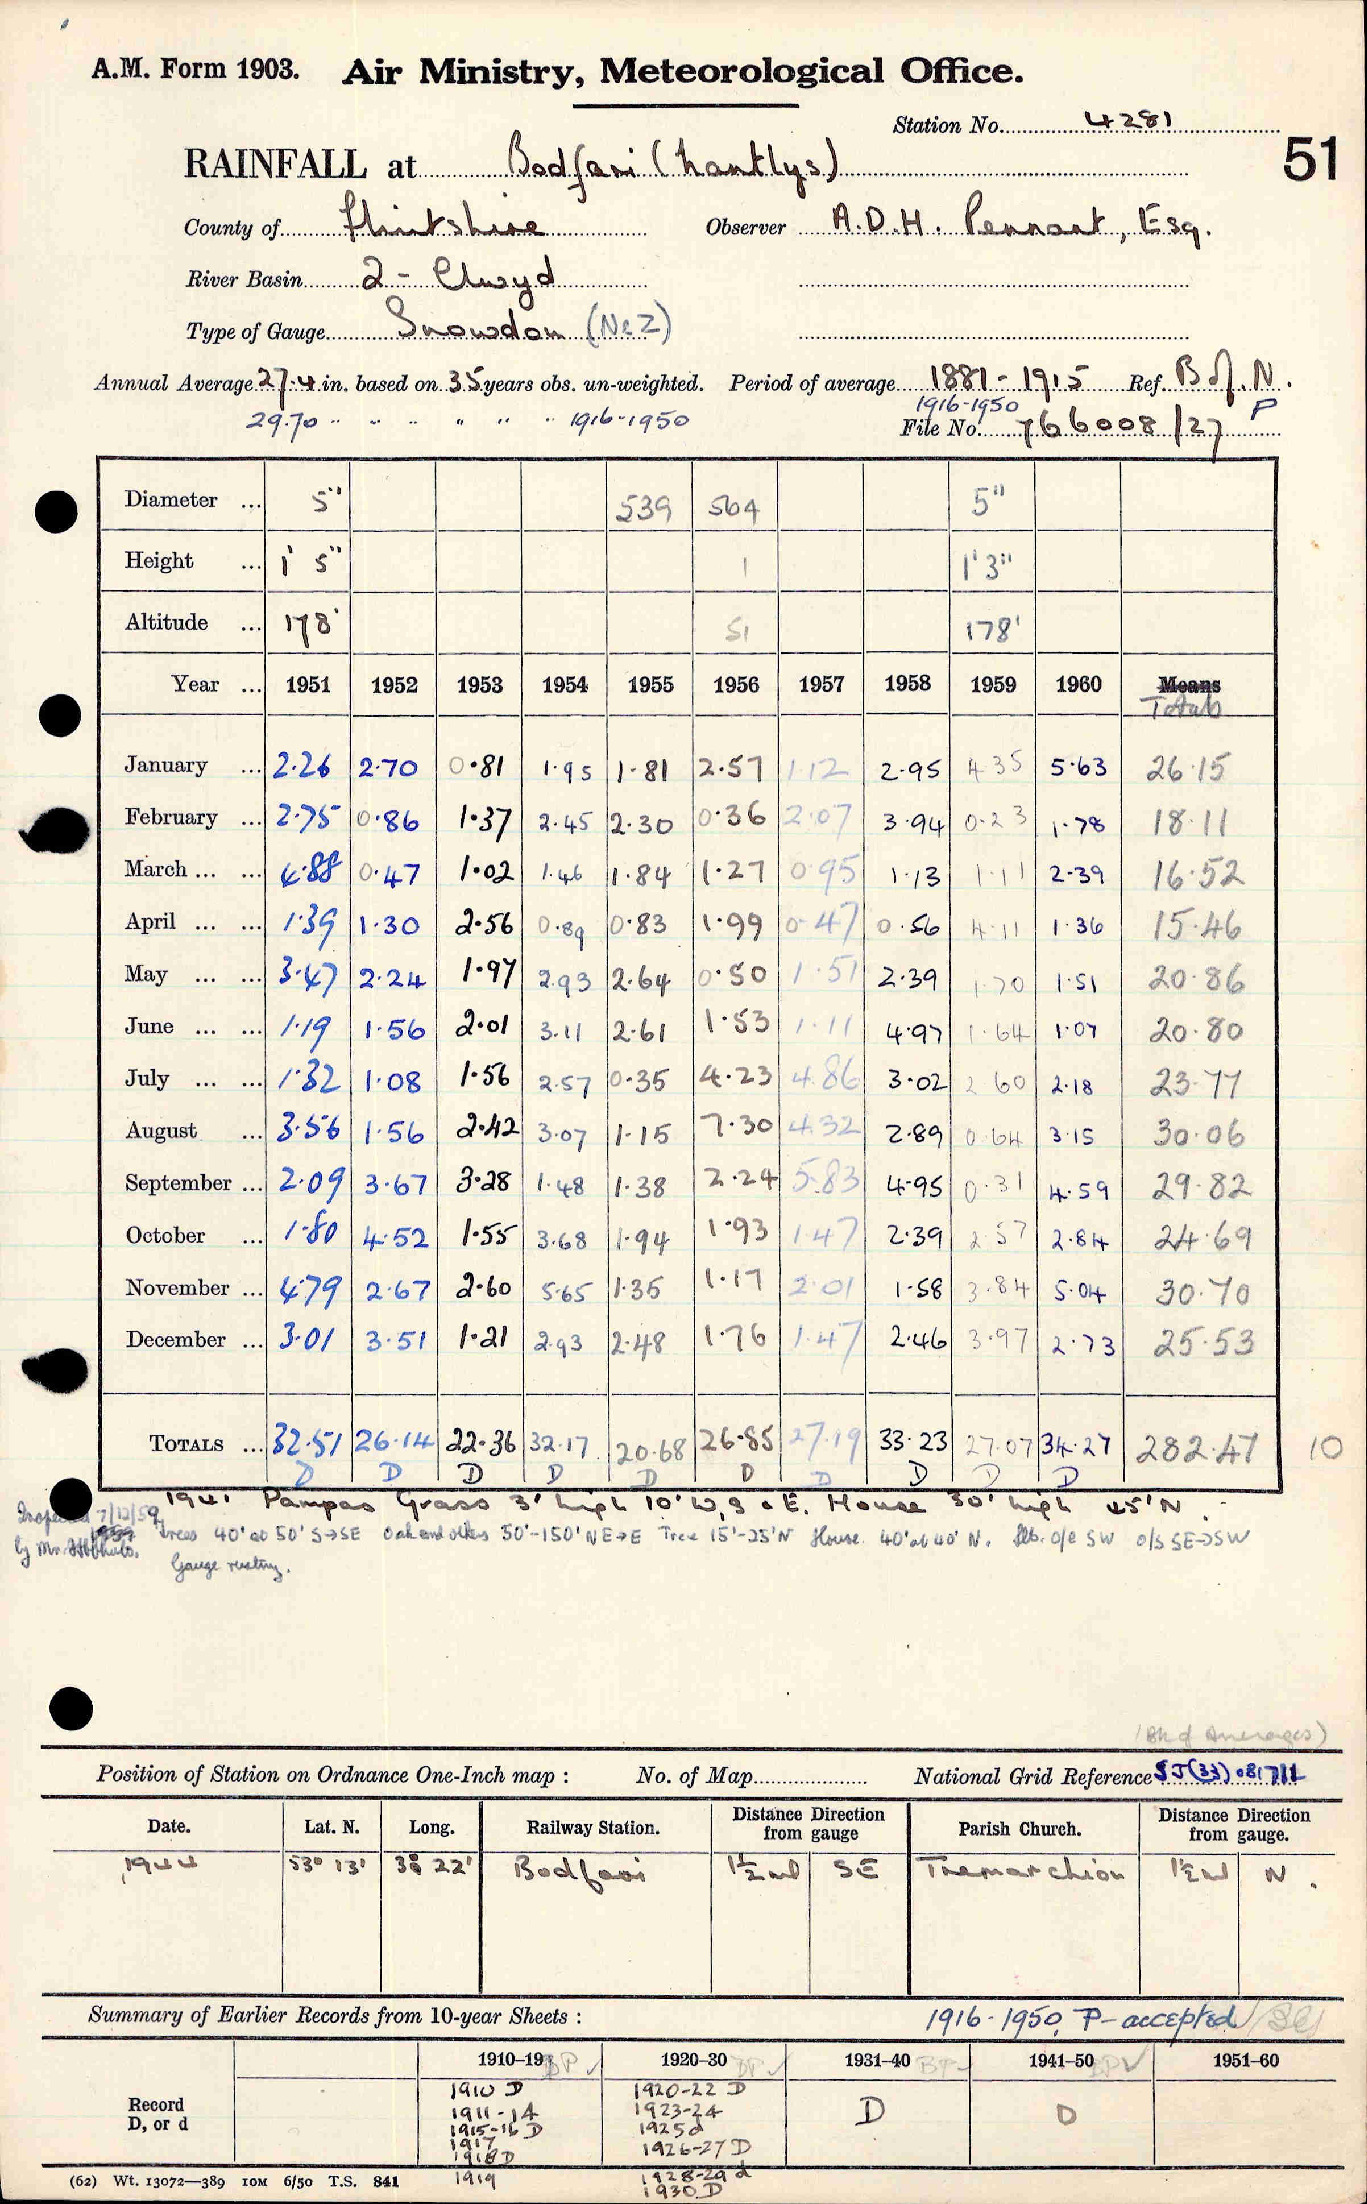 A.M. Form 1903. Air Ministry, Meteorological Office.
Station No. 4281
51
RAINFALL at Bodfari (Nantlys)
County of Flintshire Observer A.D.H. Pennant, Esq.
River Basin 2 - Clwyd
Type of Gauge Snowdon (Ne2)
Annual Average 27.4 in. based on 35 years obs. un-weighted. Period of average 1881-1915 Ref. B of. N.
29.70 " " " " " " 1916-1950 1916-1950 P
File No. 766008/27
Diameter ... 5" 539 564 5"
Height ... 1' 5" 1 1'3"
Altitude ... 178' 51 178'
Year ... 1951 1952 1953 1954 1955 1956 1957 1958 1959 1960 Means
Totals
January ... 2.26 2.70 0.81 1.95 1.81 2.57 1.12 2.95 4.35 5.63 26.15
February ... 2.75 0.86 1.37 2.45 2.30 0.36 2.07 3.94 0.23 1.78 18.11
March ... ... 4.88 0.47 1.02 1.46 1.84 1.27 0.95 1.13 1.11 2.39 16.52
April ... ... 1.39 1.30 2.56 0.89 0.83 1.99 0.47 0.56 4.11 1.36 15.46
May ... ... 3.47 2.24 1.97 2.93 2.64 0.50 1.51 2.39 1.70 1.51 20.86
June ... ... 1.19 1.56 2.01 3.11 2.61 1.53 1.11 4.97 1.64 1.07 20.80
July ... ... 1.32 1.08 1.56 2.57 0.35 4.23 4.86 3.02 2.60 2.18 23.77
August ... 3.56 1.56 2.42 3.07 1.15 7.30 4.32 2.89 0.64 3.15 30.06
September ... 2.09 3.67 3.28 1.48 1.38 2.24 5.83 4.95 0.31 4.59 29.82
October ... 1.80 4.52 1.55 3.68 1.94 1.93 1.47 2.39 2.57 2.84 24.69
November ... 4.79 2.67 2.60 5.65 1.35 1.17 2.01 1.58 3.84 5.04 30.70
December ... 3.01 3.51 1.21 2.93 2.48 1.76 1.47 2.46 3.97 2.73 25.53
TOTALS ... 32.51 26.14 22.36 32.17 20.68 26.85 27.19 33.23 27.07 34.27 282.47 10
D D D D D D D D D D
1941 Pampas Grass 3' high 10' W, S & E. House 30' high 45' N.
Inspected 7/12/59 Trees 40' at 50' S→SE Oak and others 50'-150' NE→E Tree 15'-25' N House 40' at 40' N. o/e SW o/s SE→SW
by Mr. Gauge rusting.
(Bk of Averages)
Position of Station on Ordnance One-Inch map : No. of Map National Grid Reference SJ(33) 081711
Date. Lat. N. Long. Railway Station. Distance Direction from gauge Parish Church. Distance Direction from gauge.
1944 53° 13' 3° 22' Bodfari 1½ ml SE Tremarchion 1½ ml N.
Summary of Earlier Records from 10-year Sheets : 1916-1950, P-accepted
1910-19 BP ✓ 1920-30 BP ✓ 1931-40 BP ✓ 1941-50 BP ✓ 1951-60
Record D, or d
1910 D 1920-22 D D D
1911-14 1923-24
1915-16 D 1925 d
1917 1926-27 D
1918 D 1928-29 d
1919 1930 D
(62) Wt. 13072—389 10M 6/50 T.S. 841